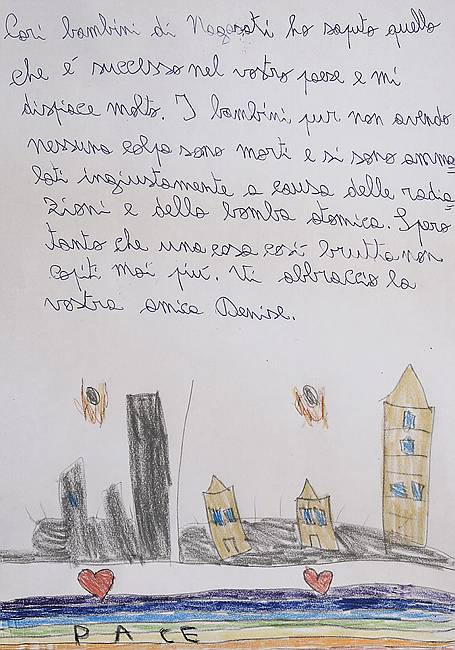 Cari bambini di Nagasati ho saputo quello
che é successo nel vostro paese e mi
dispiace molto. I bambini pur non avendo
nessuna colpa sono morti e si sono amma
lati ingiustamente a causa delle radia
zioni e della bomba atomica. Spero
tanto che una cosa così brutta non
capiti mai piú. Vi abbraccio la
vostra amica Denise.
PACE